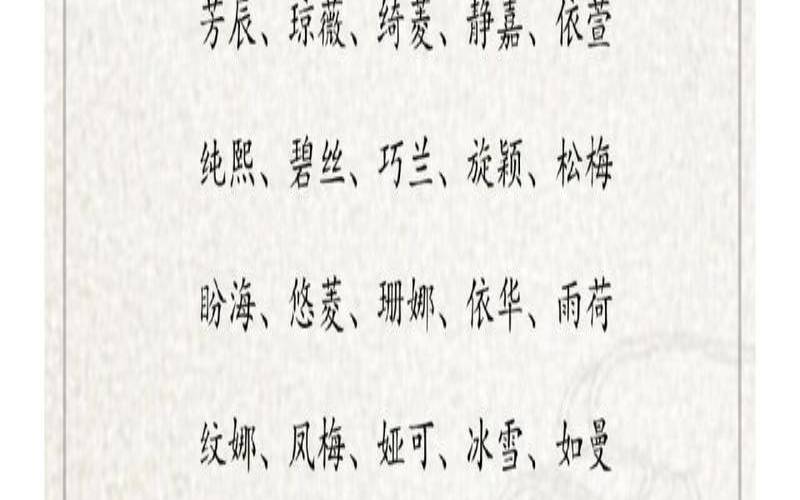 芳辰、琼薇、绮菱、静嘉、依萱
纯熙、碧丝、巧兰、旋颖、松梅
盼海、悠菱、珊娜、依华、雨荷
纹娜、凤梅、娅可、冰雪、如曼